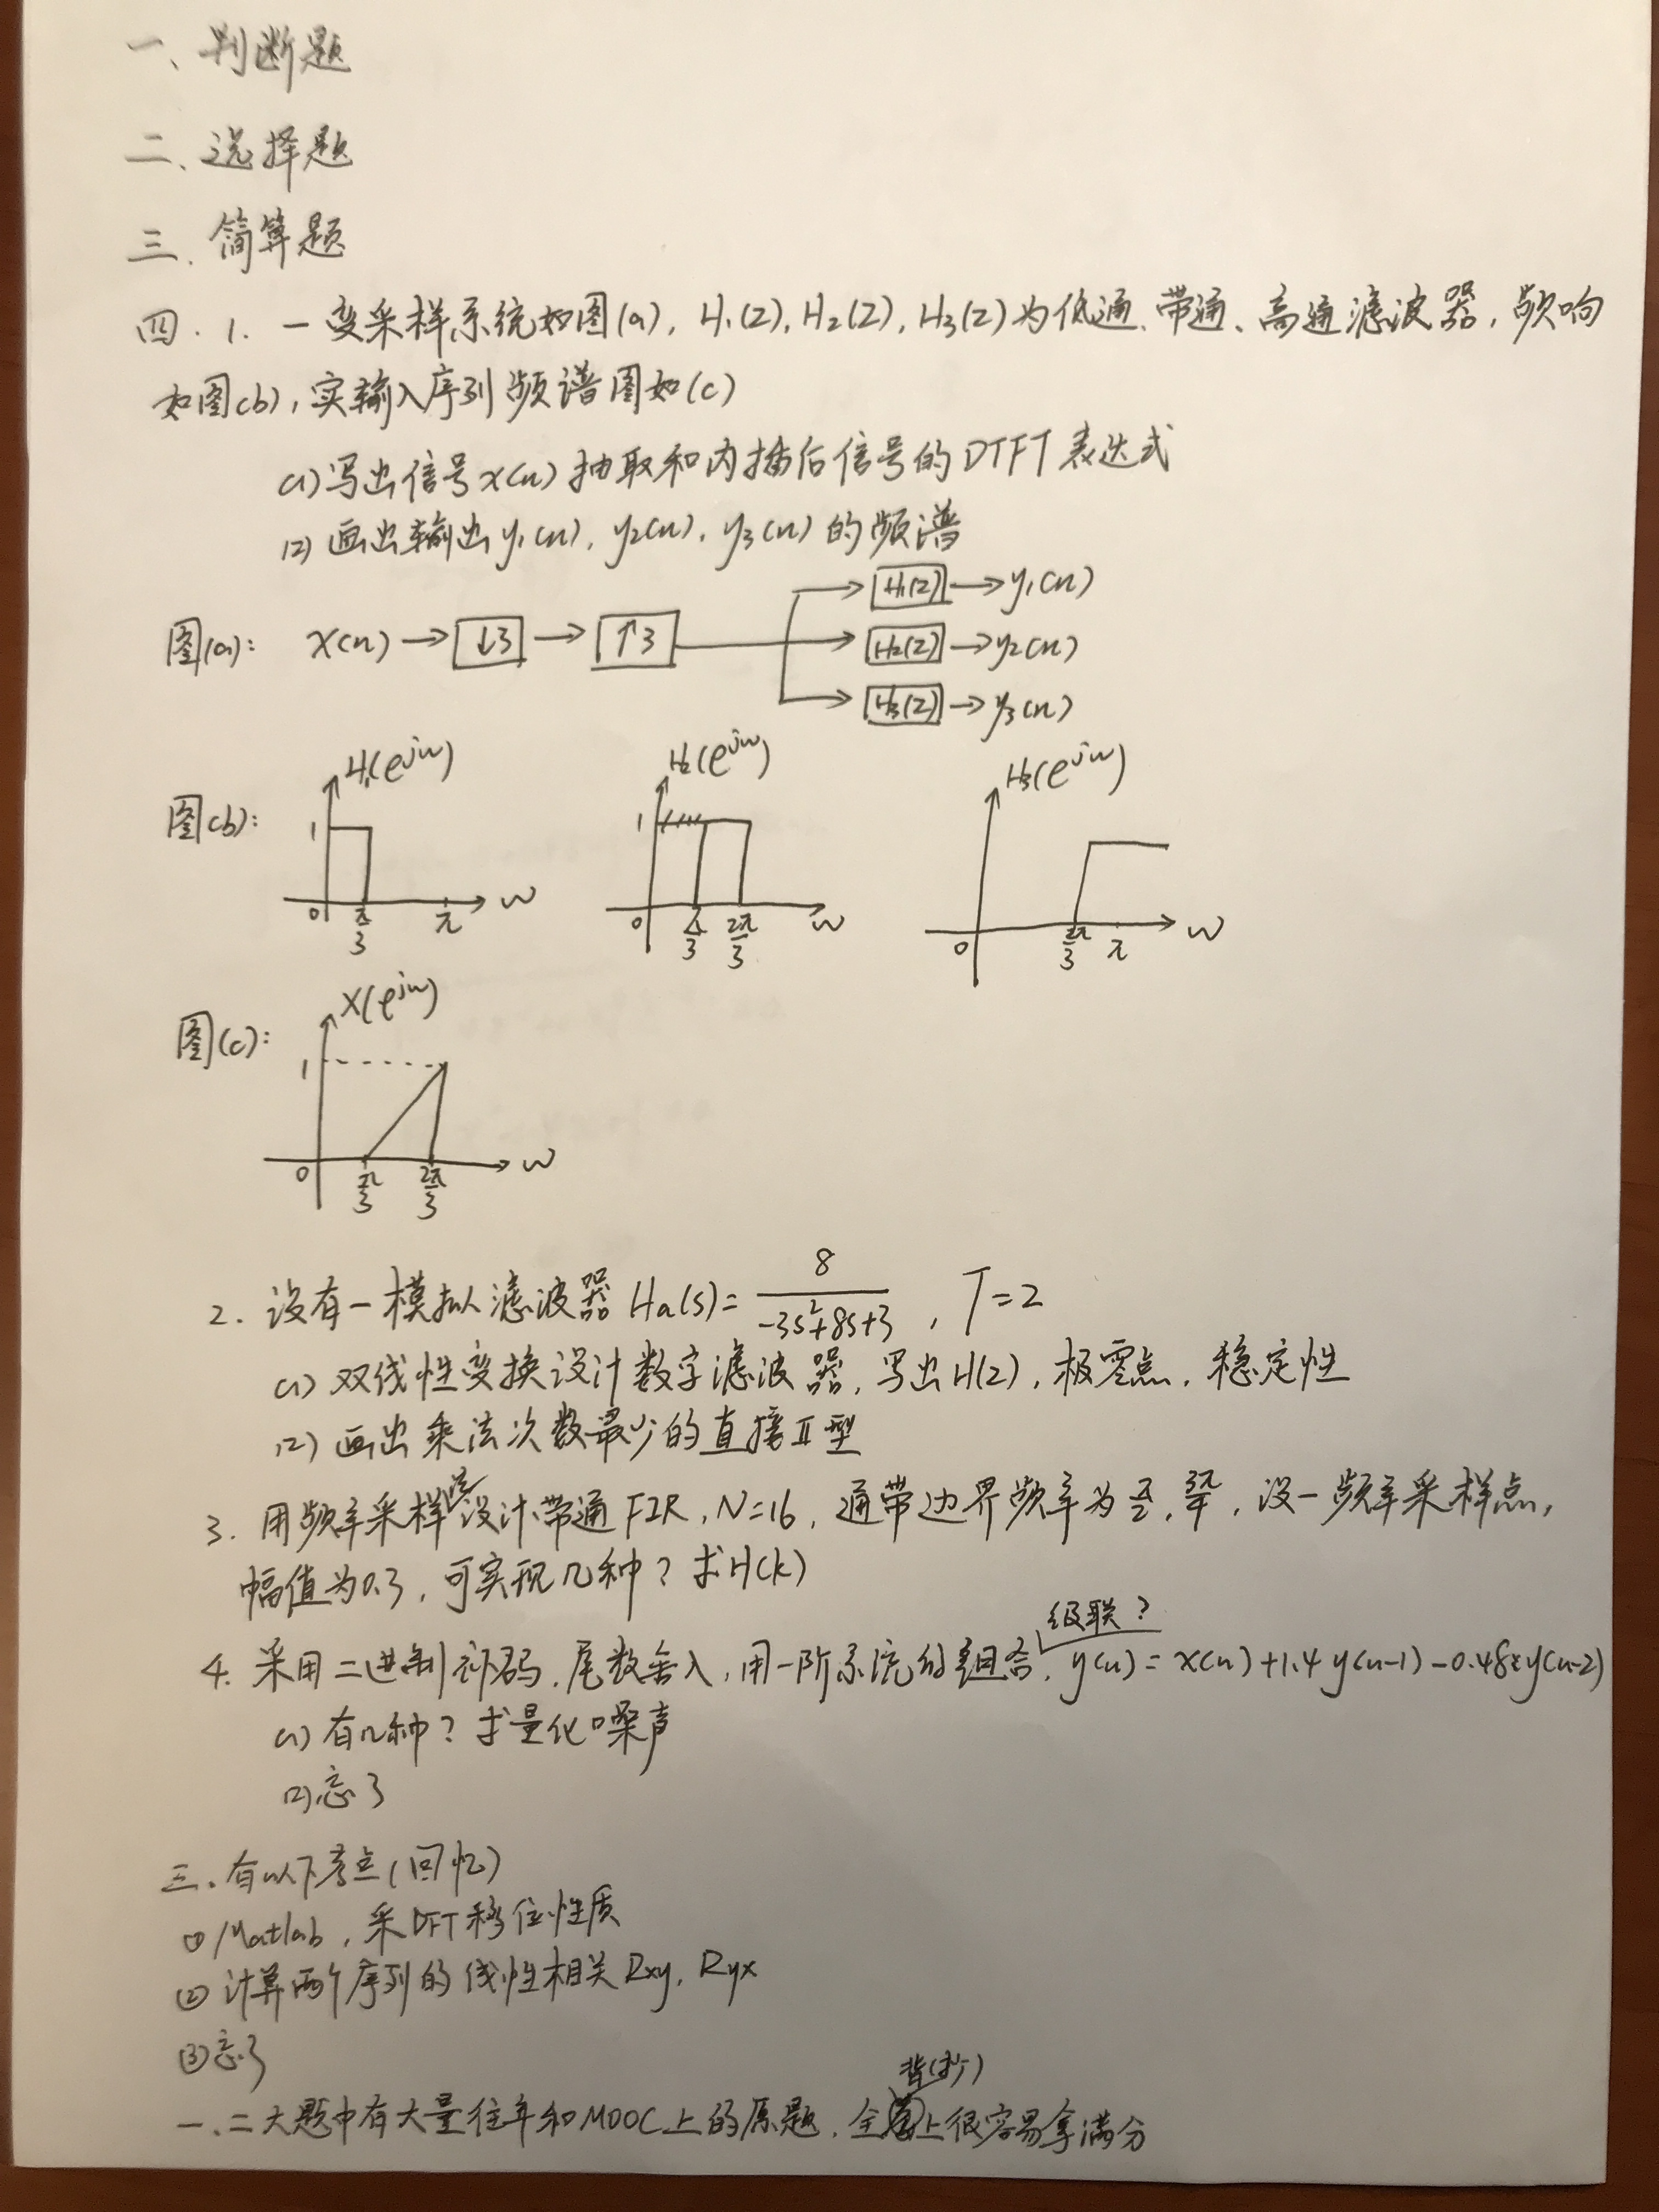 一、判断题
二、选择题
三、简算题
四.1. 一变采样系统如图(a), H₁(z), H₂(z), H₃(z)为低通、带通、高通滤波器, 频响
如图(b), 实输入序列频谱图如(c)
(1)写出信号x(n)抽取和内插后信号的DTFT表达式
(2)画出输出y₁(n), y₂(n), y₃(n)的频谱
图(a): x(n) → ↓3 → ↑3
H₁(z) → y₁(n)
H₂(z) → y₂(n)
H₃(z) → y₃(n)
图(b): H₁(e^jw) 1 0 π/3 π w
H₂(e^jw) 1 0 π/3 2π/3 w
H₃(e^jw) 0 2π/3 π w
图(c): X(e^jw) 1 0 π/3 2π/3 w
2. 设有一模拟滤波器Ha(s)= 8/(-3s²+8s+3), T=2
(1)双线性变换设计数字滤波器, 写出H(z), 极零点, 稳定性
(2)画出乘法次数最少的直接Ⅱ型
3. 用频率采样法设计带通FIR, N=16, 通带边界频率为π/2, 3π/4, 设一频率采样点,
幅值为0.3, 可实现几种? 求H(k)
4. 采用二进制补码, 尾数舍入, 用一阶系统的组合, 级联? y(n)=x(n)+1.4y(n-1)-0.48y(n-2)
(1)有几种? 求量化噪声
(2)忘了
三、有以下考点(回忆)
① Matlab, 采DFT移位性质
② 计算两个序列的线性相关Rxy, Ryx
③忘了
一、二大题中有大量往年和MOOC上的原题, 全背(打)上很容易拿满分